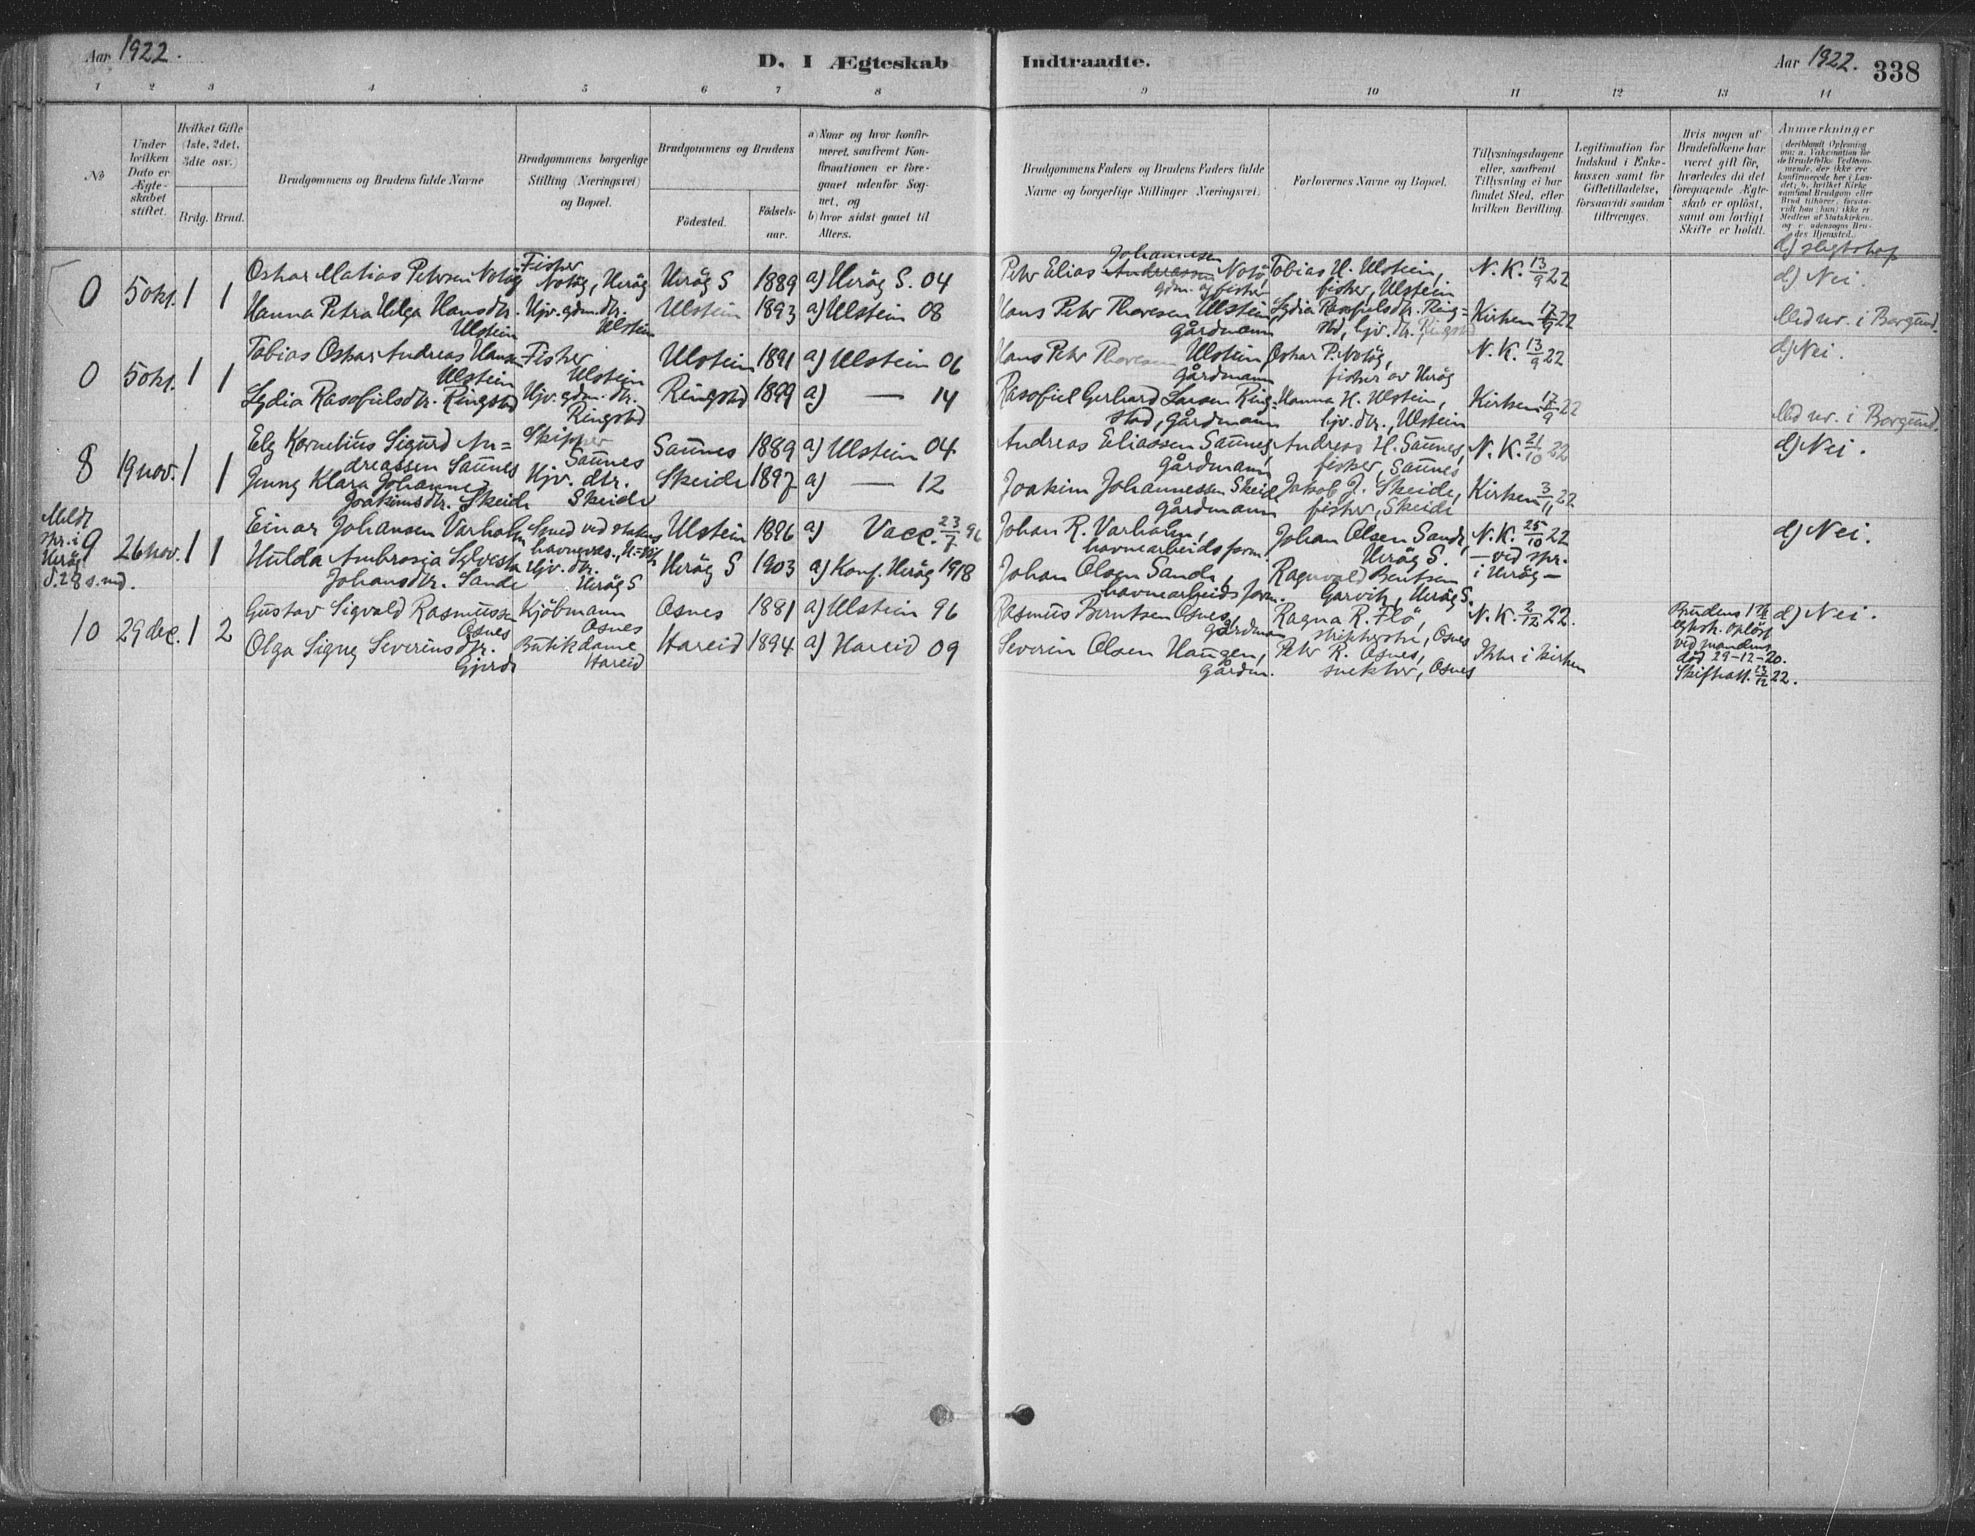 Aar 1922.
D. I Ægteskab Indtraadte.
Aar 1922. 338
1 2 3 4 5 6 7 8 9 10 11 12 13 14
№
Under hvilken Dato er Ægteskabet stiftet.
Hvilket Gifte (1ste, 2det, 3die osv.)
Brdg. Brud.
Brudgommens og Brudens fulde Navne
Brudgommens borgerlige Stilling (Næringsvei) og Bopæl.
Brudgommens og Brudens
Födested. Födsels-aar.
a) Naar og hvor konfirmeret, saafremt Konfirmationen er foregaaet udenfor Sognet, og
b) hvor sidst gaaet til Alters.
Brudgommens Faders og Brudens Faders fulde Navne og borgerlige Stillinger (Næringsvei).
Forlovernes Navne og Bopæl.
Tillysningsdagene eller, saafremt Tillysning ei har fundet Sted, efter hvilken Bevilling.
Legitimation for Indskud i Enkekassen samt for Giftetilladelse, forsaavidt saadan tiltrænges.
Hvis nogen af Brudefolkene har været gift för, hvorledes da det foregaaende Ægteskab er oplöst, samt om lovligt Skifte er holdt.
Anmerkninger
d) slegtskap
0 5 okt. 1 1
Oskar Matias Petersen Notöy
Fisker Notöy, Heröy
Heröy S 1889 a) Heröy S. 04
Peter Elias Andreassen Johannesen Notöy, gdm. og fisker
Tobias H. Ulstein, fisker, Ulstein
N. K. 13/9 22
d) Nei.
Hanna Petra Helga Hansdtr. Ulstein
Hjv. gdm. dtr. Ulstein
Ulstein 1893 a) Ulstein 08
Hans Peter Thoresen Ulstein, gårdmann
Lydia Rasofielsdtr. Ringstd, hjv. dtr. Ringstd
Kirken 17/9 22
Med nr. i Borgund.
0 5 okt. 1 1
Tobias Oskar Andreas Hansen Ulstein
Fisker Ulstein
Ulstein 1891 a) Ulstein 06
Hans Peter Thoresen Ulstein gårdmann
Oskar P. Notöy, fisker av Heröy
N. K. 13/9 22
d) Nei.
Lydia Rasofielsdtr. Ringstd
Hjv. gdm. dtr. Ringstd
Ringstd 1899 a) — 14
Rasofiel Gerhard Larsen Ringstad, gårdmann
Hanna H. Ulstein, hjv. dtr., Ulstein
Kirken 17/9 22
Med nr. i Borgund.
8 19 nov. 1 1
Elg Kornelius Sigurd Andreassen Saunes
Skipper Saunes
Saunes 1889 a) Ulstein 04
Andreas Eliassen Saunes, gårdmann
Andreas H. Saunes, fisker, Saunes
N. K. 21/10 22
d) Nei.
Jenny Klara Johanne Joakimsdtr. Skeide
Hjv. dtr. Skeide
Skeide 1897 a) — 12
Joakim Johannessen Skeide gårdmann
Jakob J. Skeide, fisker, Skeide
Kirken 3/11 22
Meldt spr. i Heröy S. 28 s. md.
9 26 nov. 1 1
Einar Johansen Varholm
Smed ved statens havnevæs.
Ulstein 1896 a) Vacc. 23/7 96
Johan R. Varholm, havnearbeidsform.
Johan Olsen Sande, Heröy S.
N. K. 25/10 22
d) Nei.
Hulda Ambrosia Sylvesta Johansdtr. Sande
Hjv. dtr. Heröy S
Heröy S 1903 a) Konf. Heröy 1918
Johan Olsen Sande, havnearbeidsform.
Ragnvald Berntsen Garvik, Heröy S.
— ved spr. i Heröy —
10 29 dec. 1 2
Gustav Sigvald Rasmussen Osnes
Kjöbmann Osnes
Osnes 1881 a) Ulstein 96
Rasmus Berntsen Osnes, gårdman
Ragna R. Flö, Osnes
N. K. 2/12 22.
Brudens 1ste egtsk. oplöst ved mandens död 29-12-20. Skifteatt. 23/12 22.
d) Nei.
Olga Signy Severinsdtr. Gjerde
Butikdame Hareid
Hareid 1894 a) Hareid 09
Severin Olsen Haugen, gårdm.
Peter R. Osnes, snekker, Osnes
Ikke i kirken